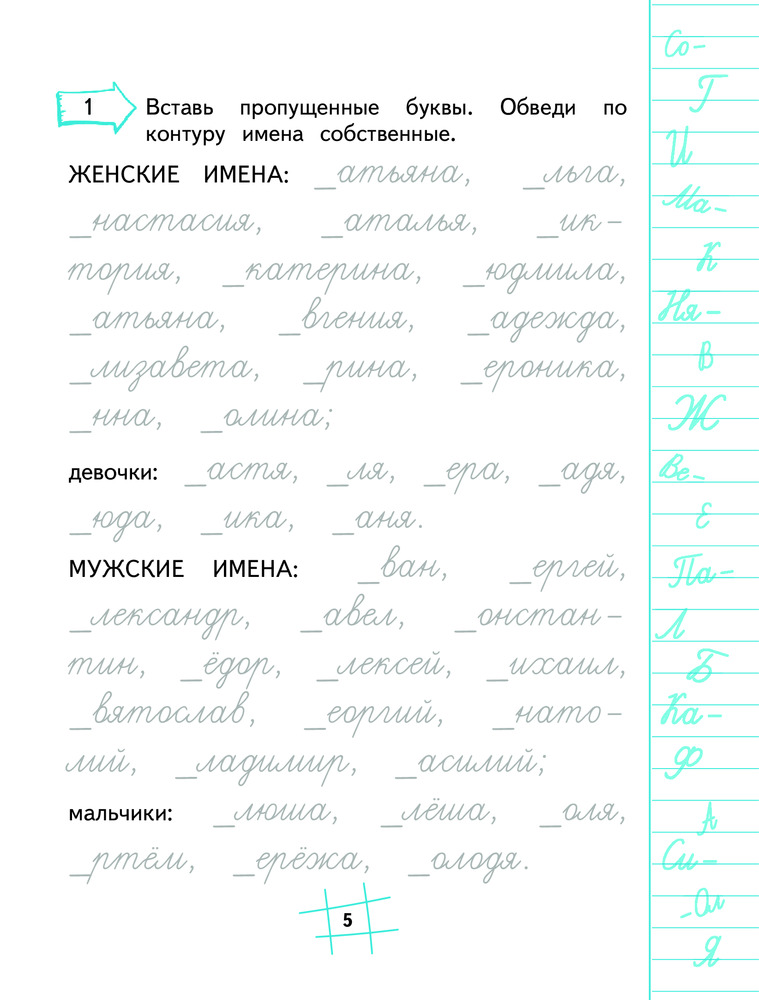 1
Вставь пропущенные буквы. Обведи по
контуру имена собственные.
ЖЕНСКИЕ ИМЕНА: _атьяна, _льга,
_настасия, _аталья, _ик-
тория, _катерина, _юдмила,
_атьяна, _вгения, _адежда,
_лизавета, _рина, _ероника,
_нна, _олина;
девочки: _астя, _ля, _ера, _адя,
_юда, _ика, _аня.
МУЖСКИЕ ИМЕНА: _ван, _ергей,
_лександр, _авел, _онстан-
тин, _ёдор, _лексей, _ихаил,
_вятослав, _еоргий, _нато-
лий, _ладимир, _асилий;
мальчики: _люша, _лёша, _оля,
_ртём, _ерёжа, _олодя.
5
Со-
Г
И
Ма-
К
Ня-
В
Ж
Ве-
Е
Па-
Л
Б
Ка-
Ф
А
Си-
-Ол
Я